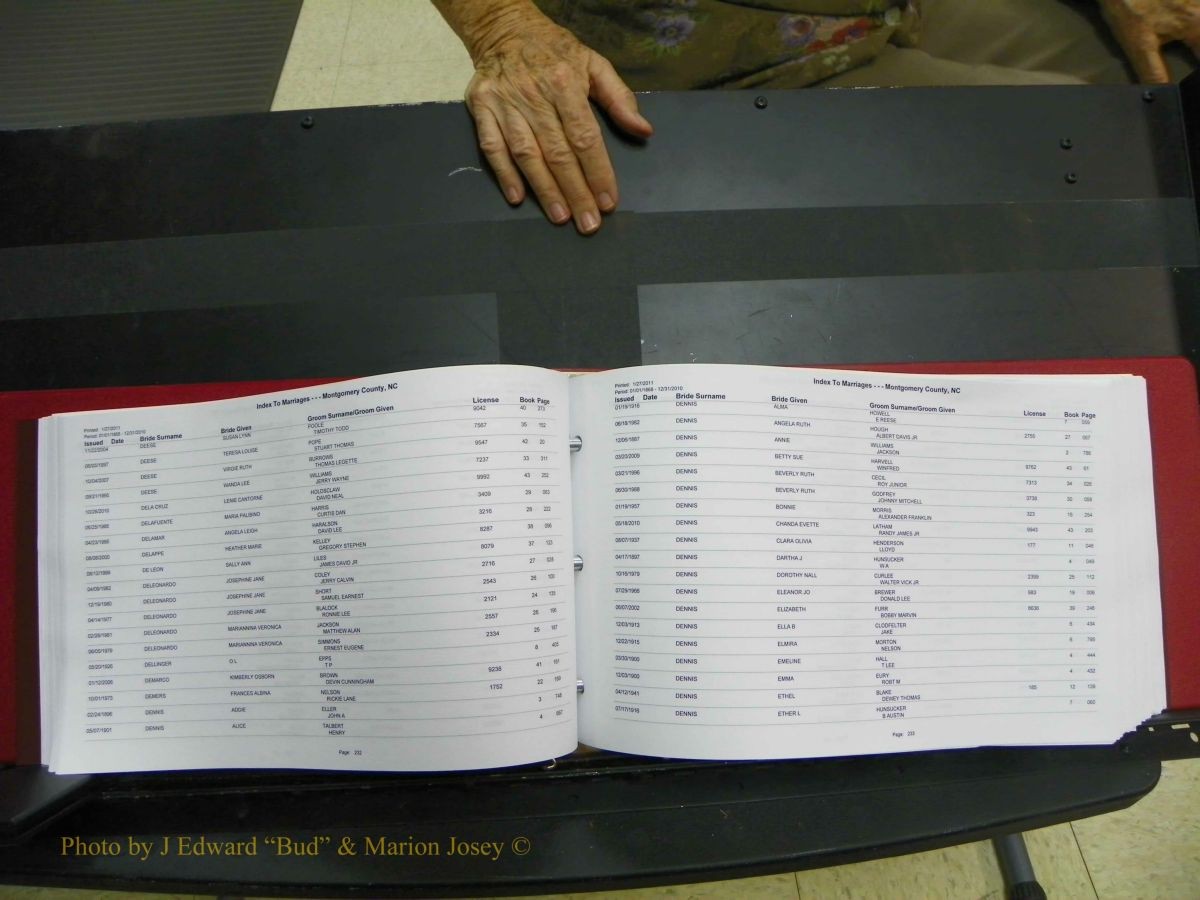 Index To Marriages - - - Montgomery County, NC
Printed: 1/27/2011
Period: 01/01/1868 - 12/31/2010
Issued Date Bride Surname Bride Given Groom Surname/Groom Given License Book Page
11/22/2004 DEESE SUSAN LYNN POOLE 9042 40 273
TIMOTHY TODD
DEESE TERESA LOUISE POPE 7587 35 152
STUART THOMAS
10/04/2007 DEESE VIRGIE RUTH BURROWS 9547 42 20
THOMAS LEGETTE
DEESE WANDA LEE WILLIAMS 7237 33 311
JERRY WAYNE
10/26/2010 DELA CRUZ LENIE CANTORNE HOLDSCLAW 9992 43 252
DAVID NEAL
DELAFUENTE MARIA PALBINO HARRIS 3409 29
CURTIS DAN
DELAMAR ANGELA LEIGH HARALSON 3216 28 222
DAVID LEE
DELAPPE HEATHER MARIE KELLEY 8287 38
GREGORY STEPHEN
DE LEON SALLY ANN LILES 8079 37 123
JAMES DAVID JR
DELEONARDO JOSEPHINE JANE COLEY 2716 27
JERRY CALVIN
12/19/1980 DELEONARDO JOSEPHINE JANE SHORT 2543 26 100
SAMUEL EARNEST
04/14/1977 DELEONARDO JOSEPHINE JANE BLALOCK 2121 24
RONNIE LEE
DELEONARDO MARIANNINA VERONICA JACKSON 2557 26
MATTHEW ALAN
06/05/1979 DELEONARDO MARIANNINA VERONICA SIMMONS 2334 25 187
ERNEST EUGENE
DELLINGER O L EPPS 8 405
T P
01/12/2006 DEMARCO KIMBERLY OSBORN BROWN 9236 41 151
DEVIN CUNNINGHAM
10/01/1973 DEMERS FRANCES ALBINA NELSON 1752 22 159
RICKIE LANE
02/24/1896 DENNIS ADDIE ELLER 3 748
JOHN A
05/07/1901 DENNIS ALICE TALBERT 4
HENRY
Page: 232
Index To Marriages - - - Montgomery County, NC
Printed: 1/27/2011
Period: 01/01/1868 - 12/31/2010
Issued Date Bride Surname Bride Given Groom Surname/Groom Given License Book Page
01/19/1916 DENNIS ALMA HOWELL 7 059
E REESE
06/18/1982 DENNIS ANGELA RUTH HOUGH 2755 27 067
ALBERT DAVIS JR
12/06/1887 DENNIS ANNIE WILLIAMS 2
JACKSON
03/20/2009 DENNIS BETTY SUE HARVELL 9762 43 61
WINFRED
03/21/1996 DENNIS BEVERLY RUTH CECIL 7313 34 026
ROY JUNIOR
DENNIS BEVERLY RUTH GODFREY 3738 30
JOHNNY MITCHELL
01/19/1957 DENNIS BONNIE MORRIS 323 15 254
ALEXANDER FRANKLIN
05/18/2010 DENNIS CHANDA EVETTE LATHAM 9943 43 203
RANDY JAMES JR
08/07/1937 DENNIS CLARA OLIVIA HENDERSON 177 11 046
LLOYD
04/17/1897 DENNIS DARTHA J HUNSUCKER 4 049
W A
10/16/1979 DENNIS DOROTHY NALL CURLEE 2399 25 112
WALTER VICK JR
07/29/1966 DENNIS ELEANOR JO BREWER 983 19 006
DONALD LEE
06/07/2002 DENNIS ELIZABETH FURR 8636 39 246
BOBBY MARVIN
12/23/1913 DENNIS ELLA B CLODFELTER 6 434
JAKE
12/22/1915 DENNIS ELMIRA MORTON 6 799
NELSON
03/30/1900 DENNIS EMELINE HALL 4 444
T LEE
12/03/1900 DENNIS EMMA EURY 4 432
ROBT M
04/12/1941 DENNIS ETHEL BLAKE 165 12 139
DEWEY THOMAS
07/17/1916 DENNIS ETHER L HUNSUCKER 7 060
B AUSTIN
Page: 233
Photo by J Edward “Bud” & Marion Josey ©